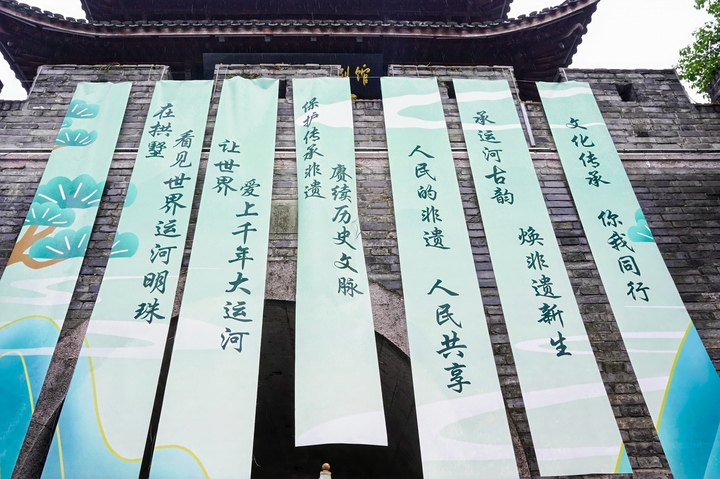 馆
在拱墅
看见世界运河明珠
让世界
爱上千年大运河
保护传承非遗
赓续历史文脉
人民的非遗
人民共享
承运河古韵
焕非遗新生
文化传承
你我同行